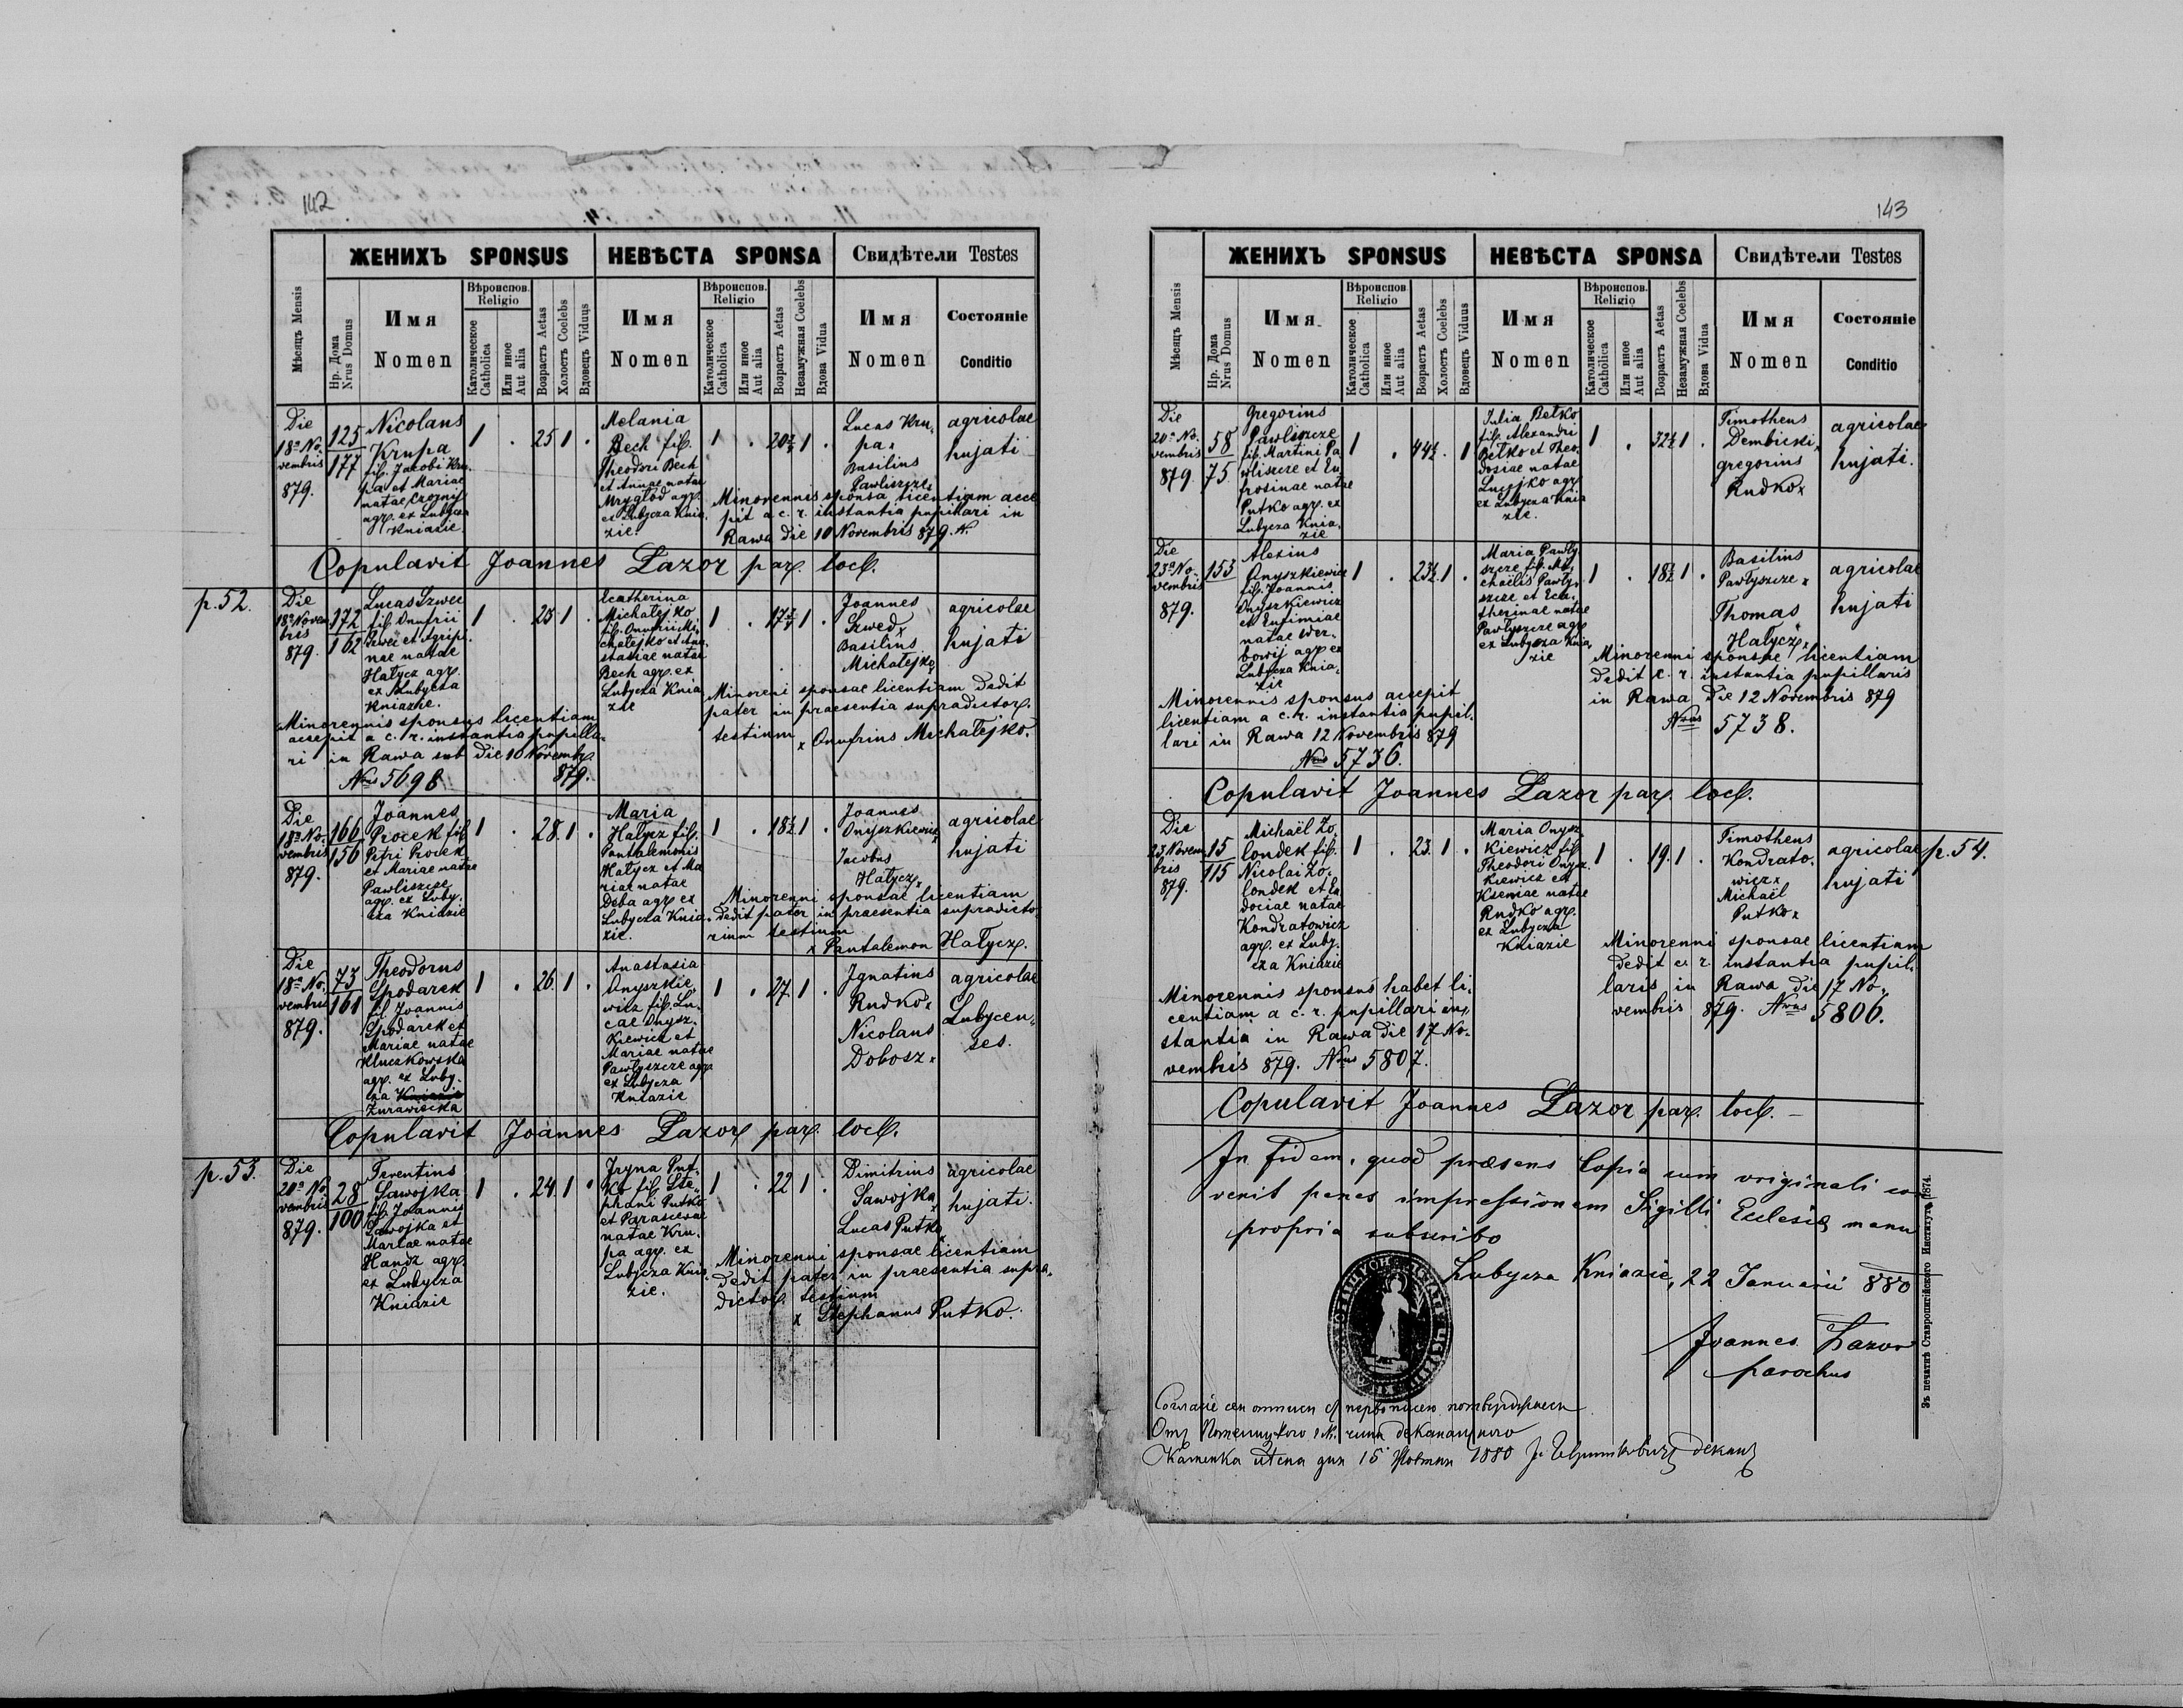 142
ЖЕНИХЪ SPONSUS
НЕВѢСТА SPONSA
Свидѣтели Testes
Мѣсяцъ Mensis
Нр. Дома
Nrus Domus
Имя
Nomen
Вѣроиспов.
Religio
Католическое
Catholica
Или иное
Aut alia
Возрастъ Aetas
Холостъ Coelebs
Вдовецъ Viduus
Имя
Nomen
Вѣроиспов.
Religio
Католическое
Catholica
Или иное
Aut alia
Возрастъ Aetas
Незамужная Coelebs
Вдова Vidua
Имя
Nomen
Состоянiе
Conditio
Die
18a No.
vembris
879.
125
177
Nicolaus
Krupa
fil. Jacobi Kru
pa et Mariae
natae Czornij
agr. ex Lubycza
Kniazie
1 . 25 1 .
Melania
Bech fil.
Theodori Bech
et Annae natae
Mryglod agr.
ex Lubycza Knia
zie.
1 . 20 1 .
Lucas Kru
pa x
Basilius
Pawliszcze
agricolae
hujati
Minorennis sponsa licentiam acce
pit a c. r. instantia pupillari in
Rawa die 10 Novembris 879.
Copulavit Joannes Lazor par. loci.
p. 52.
Die
18a Novem
bris
879.
172
162
Lucas Szwec
fil. Onufrii
Szwec et Agripi.
nae natae
Hałycz agr.
ex Lubycza
Kniazie.
1 . 23 1 .
Ecatherina
Michałejko
fil. Onufrii Mi.
chałejko et Ana
stasiae natae
Bech agr. ex
Lubycza Knia
zie
1 . 17 1 .
Joannes
Szwed x
Basilius
Michałejko
agricolae
hujati
Minoreni sponsae licentiam dedit
pater in praesentia supradictor.
testium x Onufrius Michałejko.
Minorennis sponsus licentiam
accepit a c. r. instantia pupilla.
ri in Rawa sub die 10 Novembr.
Nrus 5698 879.
Die
18a No.
vembris
879.
166
156
Joannes
Procek fil.
Petri Procek
et Mariae natae
Pawliszcze
agr. ex Luby.
cza Kniazie
1 . 28. 1 .
Maria
Hałycz fil.
Pantalemonis
Hałycz et Ma
riae natae
Deba agr ex
Lubycza Knia.
zie.
1 . 18½ 1 .
Joannes
Onyszkiewicz
Jacobus
Hałycz x
agricolae
hujati
Minorenni sponsae licentiam
dedit pater in praesentia supradicto.
rium testium
x Pantalemon Hałycz.
Die
18a No.
vembris
879.
73
161
Theodorus
Spodarek
fil. Joannis
Spodarek et
Mariae natae
Kluczkowska
agr. ex Luby.
cza Kniazie
Zurawiecka
1 . 26. 1 .
Anastasia
Onyszkie,
wicz fil. Lu.
cae Onysz.
kiewicz et
Mariae natae
Pawłyszcze agr
ex Lubycza
Kniazie
1 . 27. 1 .
Ignatius
Rudko x
Nicolaus
Dobosz x
agricolae
Lubycen,
ses.
Copulavit Joannes Lazor par. loci.
p. 53.
Die
20a No
vembris
879.
28
100
Terentius
Sawojka
fil. Joannis
Sawojka et
Mariae natae
Handz agr.
ex Lubycza
Kniazie
1 . 24. 1 .
Iryna Put.
ko fil. Ste.
phani Putko
et Parascevae
natae Kru.
pa agr. ex
Lubycza Knia.
zie.
1 . 22 1 .
Dimitrius
Sawojka x
Lucas Putko
agricolae
hujati.
Minorenni sponsae licentiam
dedit pater in praesentia supra.
dictor. testium
x Stephanus Putko.
143
ЖЕНИХЪ SPONSUS
НЕВѢСТА SPONSA
Свидѣтели Testes
Мѣсяцъ Mensis
Нр. Дома
Nrus Domus
Имя
Nomen
Вѣроиспов.
Religio
Католическое
Catholica
Или иное
Aut alia
Возрастъ Aetas
Холостъ Coelebs
Вдовецъ Viduus
Имя
Nomen
Вѣроиспов.
Religio
Католическое
Catholica
Или иное
Aut alia
Возрастъ Aetas
Незамужная Coelebs
Вдова Vidua
Имя
Nomen
Состоянiе
Conditio
Die
20a No.
vembris
879.
58
75
Gregorius
Pawliszcze
fil. Martini Pa
wliszcze et Eu
frosinae natae
Putko agr. ex
Lubycza Knia.
zie
1 . 44½ . 1
Julia Betko
fil. Alexandri
Betko et Theo.
dosiae natae
agr.
ex Lubycza Knia
zie.
1 . 32½ 1 .
Timotheus
Dembicki x
Gregorius
Rudko x
agricolae
hujati.
Die
23a No.
vembris
879.
153
Alexius
Onyszkiewicz
fil. Joannis
Onyszkiewicz
et Eufimiae
natae Wer.
bowij agr ex
Lubycza Knia.
zie
1 . 23½ 1 .
Maria Pawły.
szcze fil. Mi.
chaëlis Pawły.
szcze et Eca.
therinae natae
Pawłyszcze agr.
ex Lubycza Knia.
zie
1 . 18½ 1 .
Basilius
Pawłyszcze x
Thomas
Hałycz x
agricolae
hujati
Minorenni sponsae licentiam
dedit c. r. instantia pupillaris
in Rawa die 12 Novembris 879
Nrus 5738.
Minorennis sponsus accepit
licentiam a c. r. instantia pupil.
lari in Rawa 12 Novembris 879
Nrus 5736.
Copulavit Joannes Lazor par. loci.
Die
23 Novem
bris
879.
15
115
Michaël Zo.
londek fil.
Nicolai Zo.
londek et Eu
dociae natae
Kondratowicz
agr. ex Luby.
cza Kniazie
1 . 23. 1 .
Maria Onysz.
kiewicz fil.
Theodori Onysz.
kiewicz et
Kseniae natae
Rudko agr.
ex Lubycza
Kniazie
1 . 19. 1 .
Timotheus
Kondrato.
wicz x
Michaël
Putko x
agricolae
hujati
p. 54.
Minorenni sponsae licentiam
dedit c. r. instantia pupil.
laris in Rawa die 17 No.
vembris 879. Nrus 5806.
Minorennis sponsus habet li.
centiam a c. r. pupillari in,
stantia in Rawa die 17 No.
vembris 879. Nrus 5807.
Copulavit Joannes Lazor par. loci. –
In fidem, quod praesens Copia cum originali con
venit penes impressionem Sigilli Ecclesiae manu
propria subscribo
Lubycza Kniazie, 22 Januarii 880
Joannes Lazor
parochus
Зъ печатнѣ Ставропигійского Института 1874.
1880